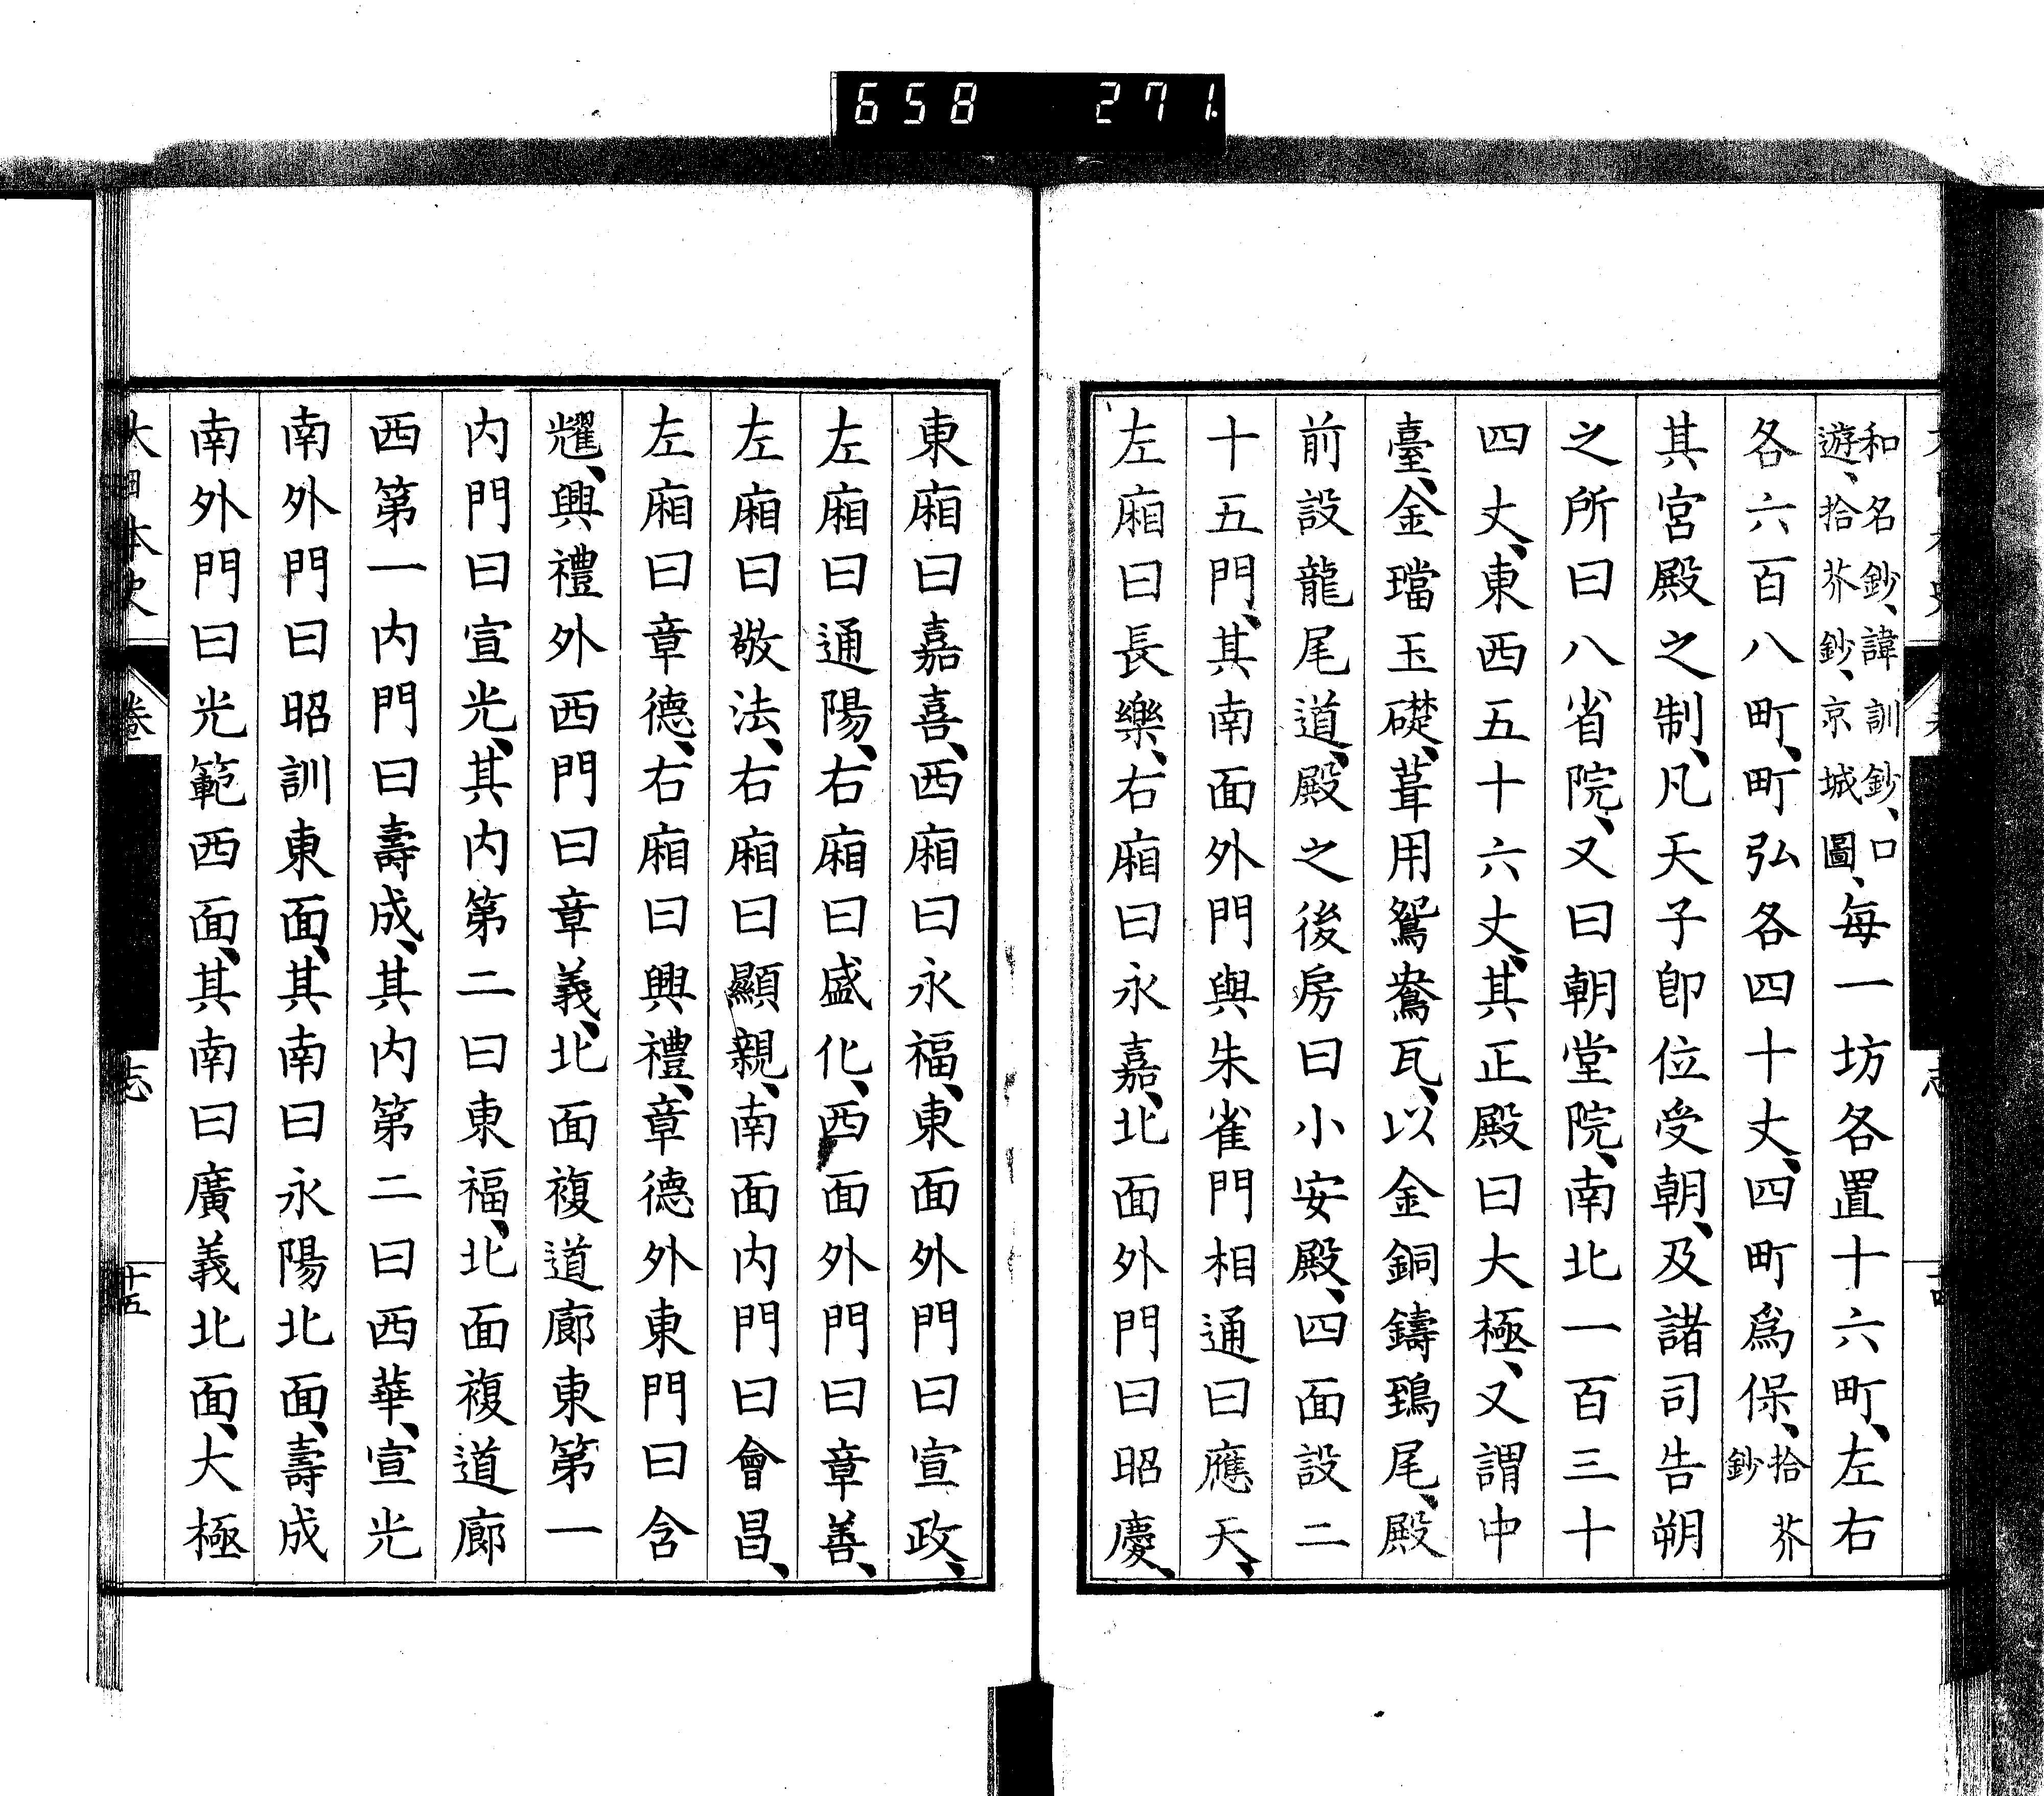 658 271
和名鈔、諱訓鈔、口
遊、拾芥鈔、京城圖、每一坊各置十六町、左右
各六百八町、町弘各四十丈、四町爲保、拾芥鈔
其宮殿之制、凡天子卽位受朝、及諸司告朔
之所曰八省院、又曰朝堂院、南北一百三十
四丈、東西五十六丈、其正殿曰大極、又謂中
臺、金璫玉礎、葺用鴛鴦瓦、以金銅鑄鵄尾、殿
前設龍尾道、殿之後房曰小安殿、四面設二
十五門、其南面外門與朱雀門相通曰應天、
左廂曰長樂、右廂曰永嘉、北面外門曰昭慶、
東廂曰嘉喜、西廂曰永福、東面外門曰宣政、
左廂曰通陽、右廂曰盛化、西面外門曰章善、
左廂曰敬法、右廂曰顯親、南面内門曰會昌、
左廂曰章德、右廂曰興禮、章德外東門曰含
耀、興禮外西門曰章義、北面複道廊東第一
内門曰宣光、其内第二曰東福、北面複道廊
西第一内門曰壽成、其内第二曰西華、宣光
南外門曰昭訓東面、其南曰永陽北面、壽成
南外門曰光範西面、其南曰廣義北面、大極
大日本史 卷 志 十五